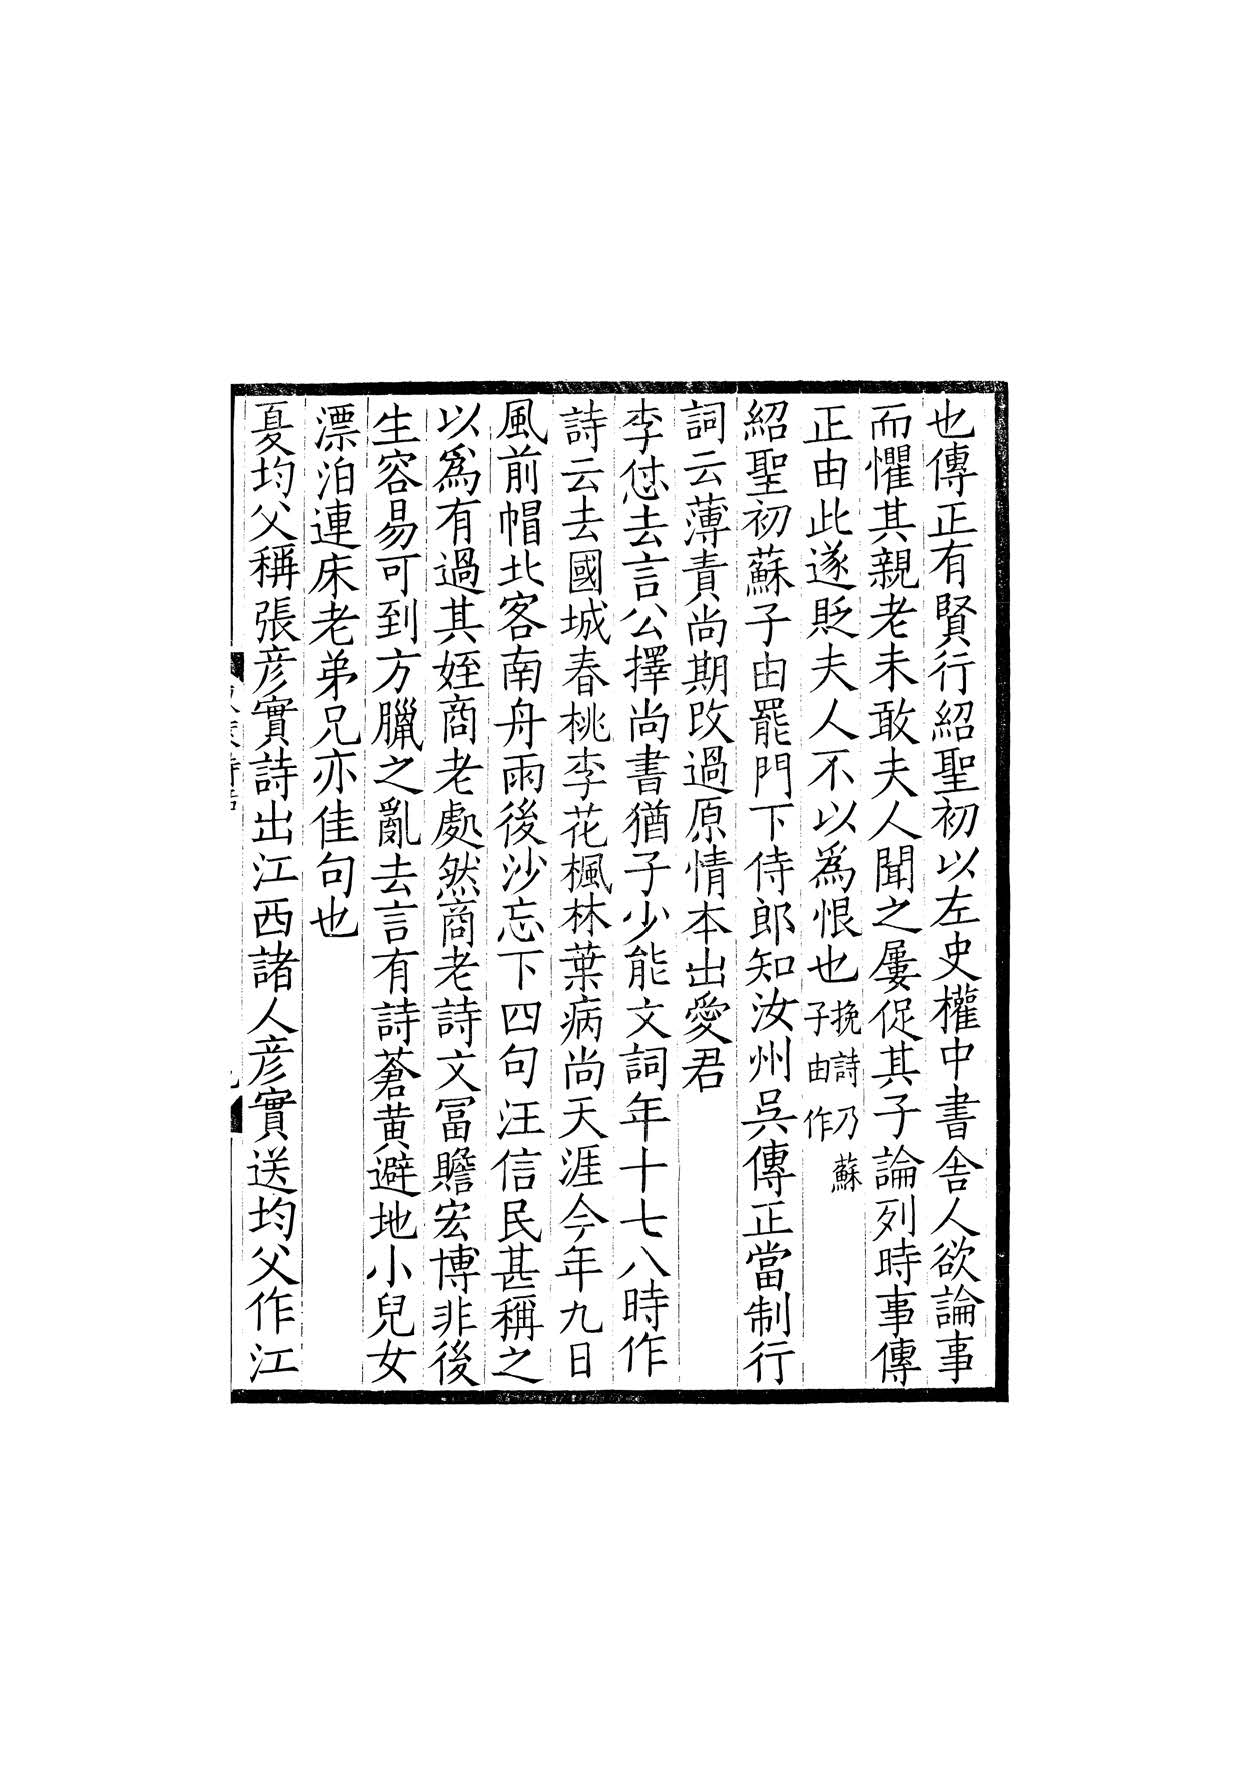 也傳正有賢行紹聖初以左史權中書舍人欲論事
而懼其親老未敢夫人聞之屢促其子論列時事傳
正由此遂貶夫人不以為恨也挽詩乃蘇子由作
紹聖初蘇子由罷門下侍郎知汝州吳傳正當制行
詞云薄責尚期改過原情本出愛君
李愆去言公擇尚書猶子少能文詞年十七八時作
詩云去國城春桃李花楓林葉病尚天涯今年九日
風前帽北客南舟雨後沙忘下四句汪信民甚稱之
以為有過其姪商老處然商老詩文冨贍宏博非後
生容易可到方臘之亂去言有詩蒼黄避地小兒女
漂泊連床老弟兄亦佳句也
夏均父稱張彦實詩出江西諸人彦實送均父作江